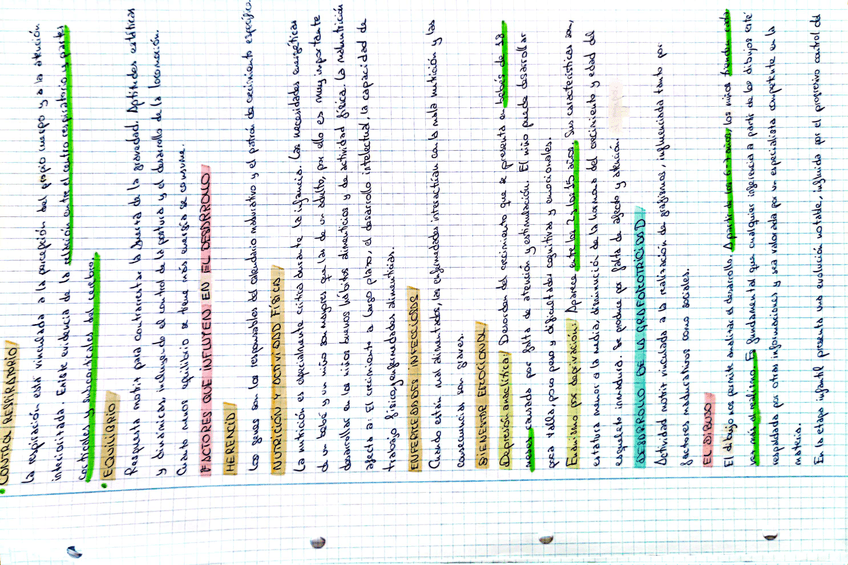 CONTROL RESPIRATORIO
La respiración está vinculada a la percepción del propio cuerpo y a la atención
interiorizada. Existe evidencia de la relación entre el centro respiratorio y partes
corticales y subcorticales del cerebro.
EQUILIBRIO
Respuesta motriz para contrarrestar la fuerza de la gravedad. Aptitudes estáticas
y dinámicas, incluyendo el control de la postura y el desarrollo de la locomoción.
Cuanto menos equilibrio se tiene más energía se consume.
FACTORES QUE INFLUYEN EN EL DESARROLLO
HERENCIA
Los genes son los responsables del calendario madurativo y el patrón de crecimiento específico.
NUTRICIÓN Y ACTIVIDAD FÍSICA
La nutrición es especialmente crítica durante la infancia. Las necesidades energéticas
de un bebé y un niño son mayores que las de un adulto, por ello es muy importante
desarrollar en los niños buenos hábitos alimenticios y de actividad física. La malnutrición
afecta a: El crecimiento a largo plazo, el desarrollo intelectual, la capacidad de
trabajo físico, enfermedades alimenticias.
ENFERMEDADES INFECCIOSAS
Cuando están mal alimentados, las enfermedades interactúan con la mala nutrición y las
consecuencias son graves.
BIENESTAR EMOCIONAL
Depresión anaclítica: Desorden del crecimiento que se presenta en bebés de 12
meses causada por falta de atención y estimulación. El niño puede desarrollar
poca talla, poco peso y dificultades cognitivas y emocionales.
Enanismo por deprivación: Aparece entre los 2 a los 15 años. Sus características son,
estatura menor a la media, disminución de la hormona del crecimiento y edad del
esqueleto inmadura. Se produce por falta de afecto y atención.
DESARROLLO DE LA GRAFOMOTRICIDAD
Actividad motriz vinculada a la realización de grafismos, influenciada tanto por
factores madurativos como sociales.
EL DIBUJO
El dibujo nos permite analizar el desarrollo. A partir de los 6-7 años, los niños tienden cada
vez más al realismo. Es fundamental que cualquier inferencia a partir de los dibujos esté
respaldada por otras informaciones y sea valorada por un especialista competente en la
materia.
En la etapa infantil presenta una evolución notable, influida por el progresivo control del